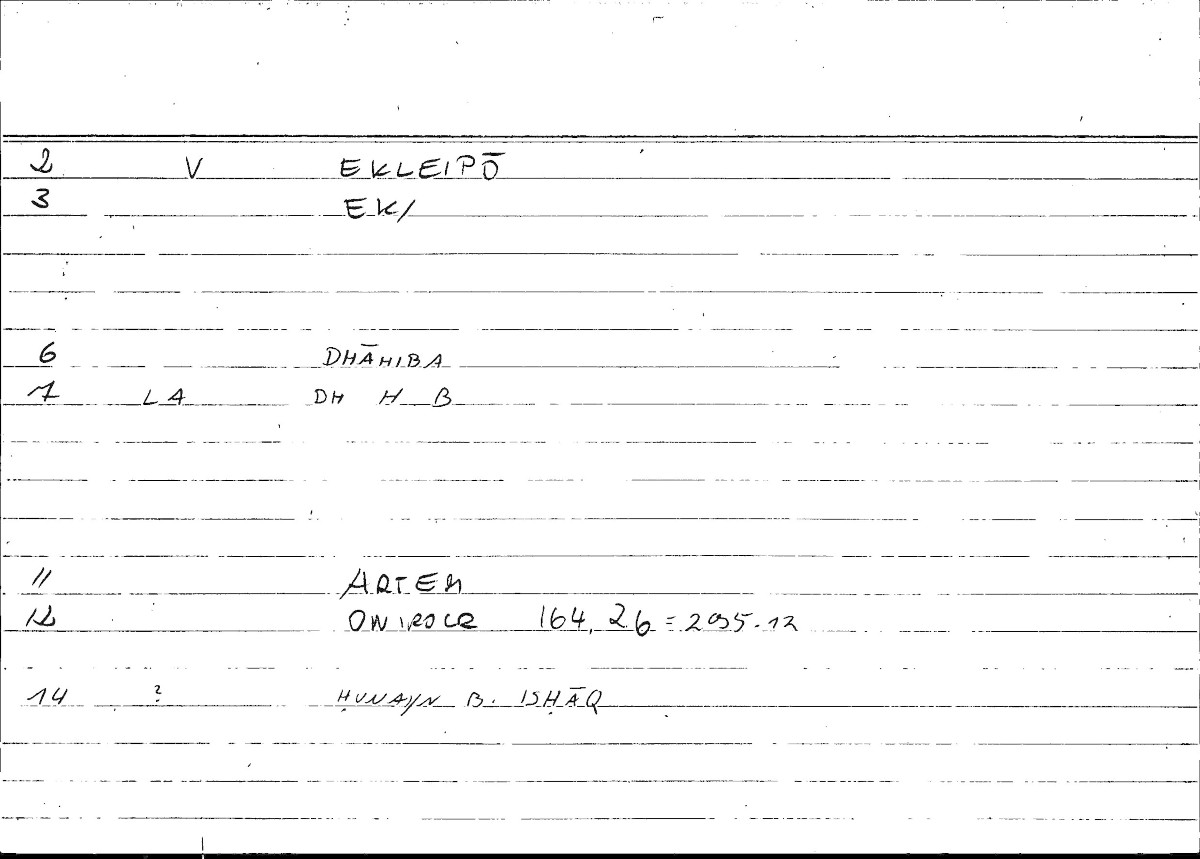 2 V EKLEIPŌ
3 EK/
6 DHĀHIBA
7 LA DH H B
11 ARTEM
12 ONIROCR 164,26=295.12
14 ? ḤUNAYN B. ISḤĀQ